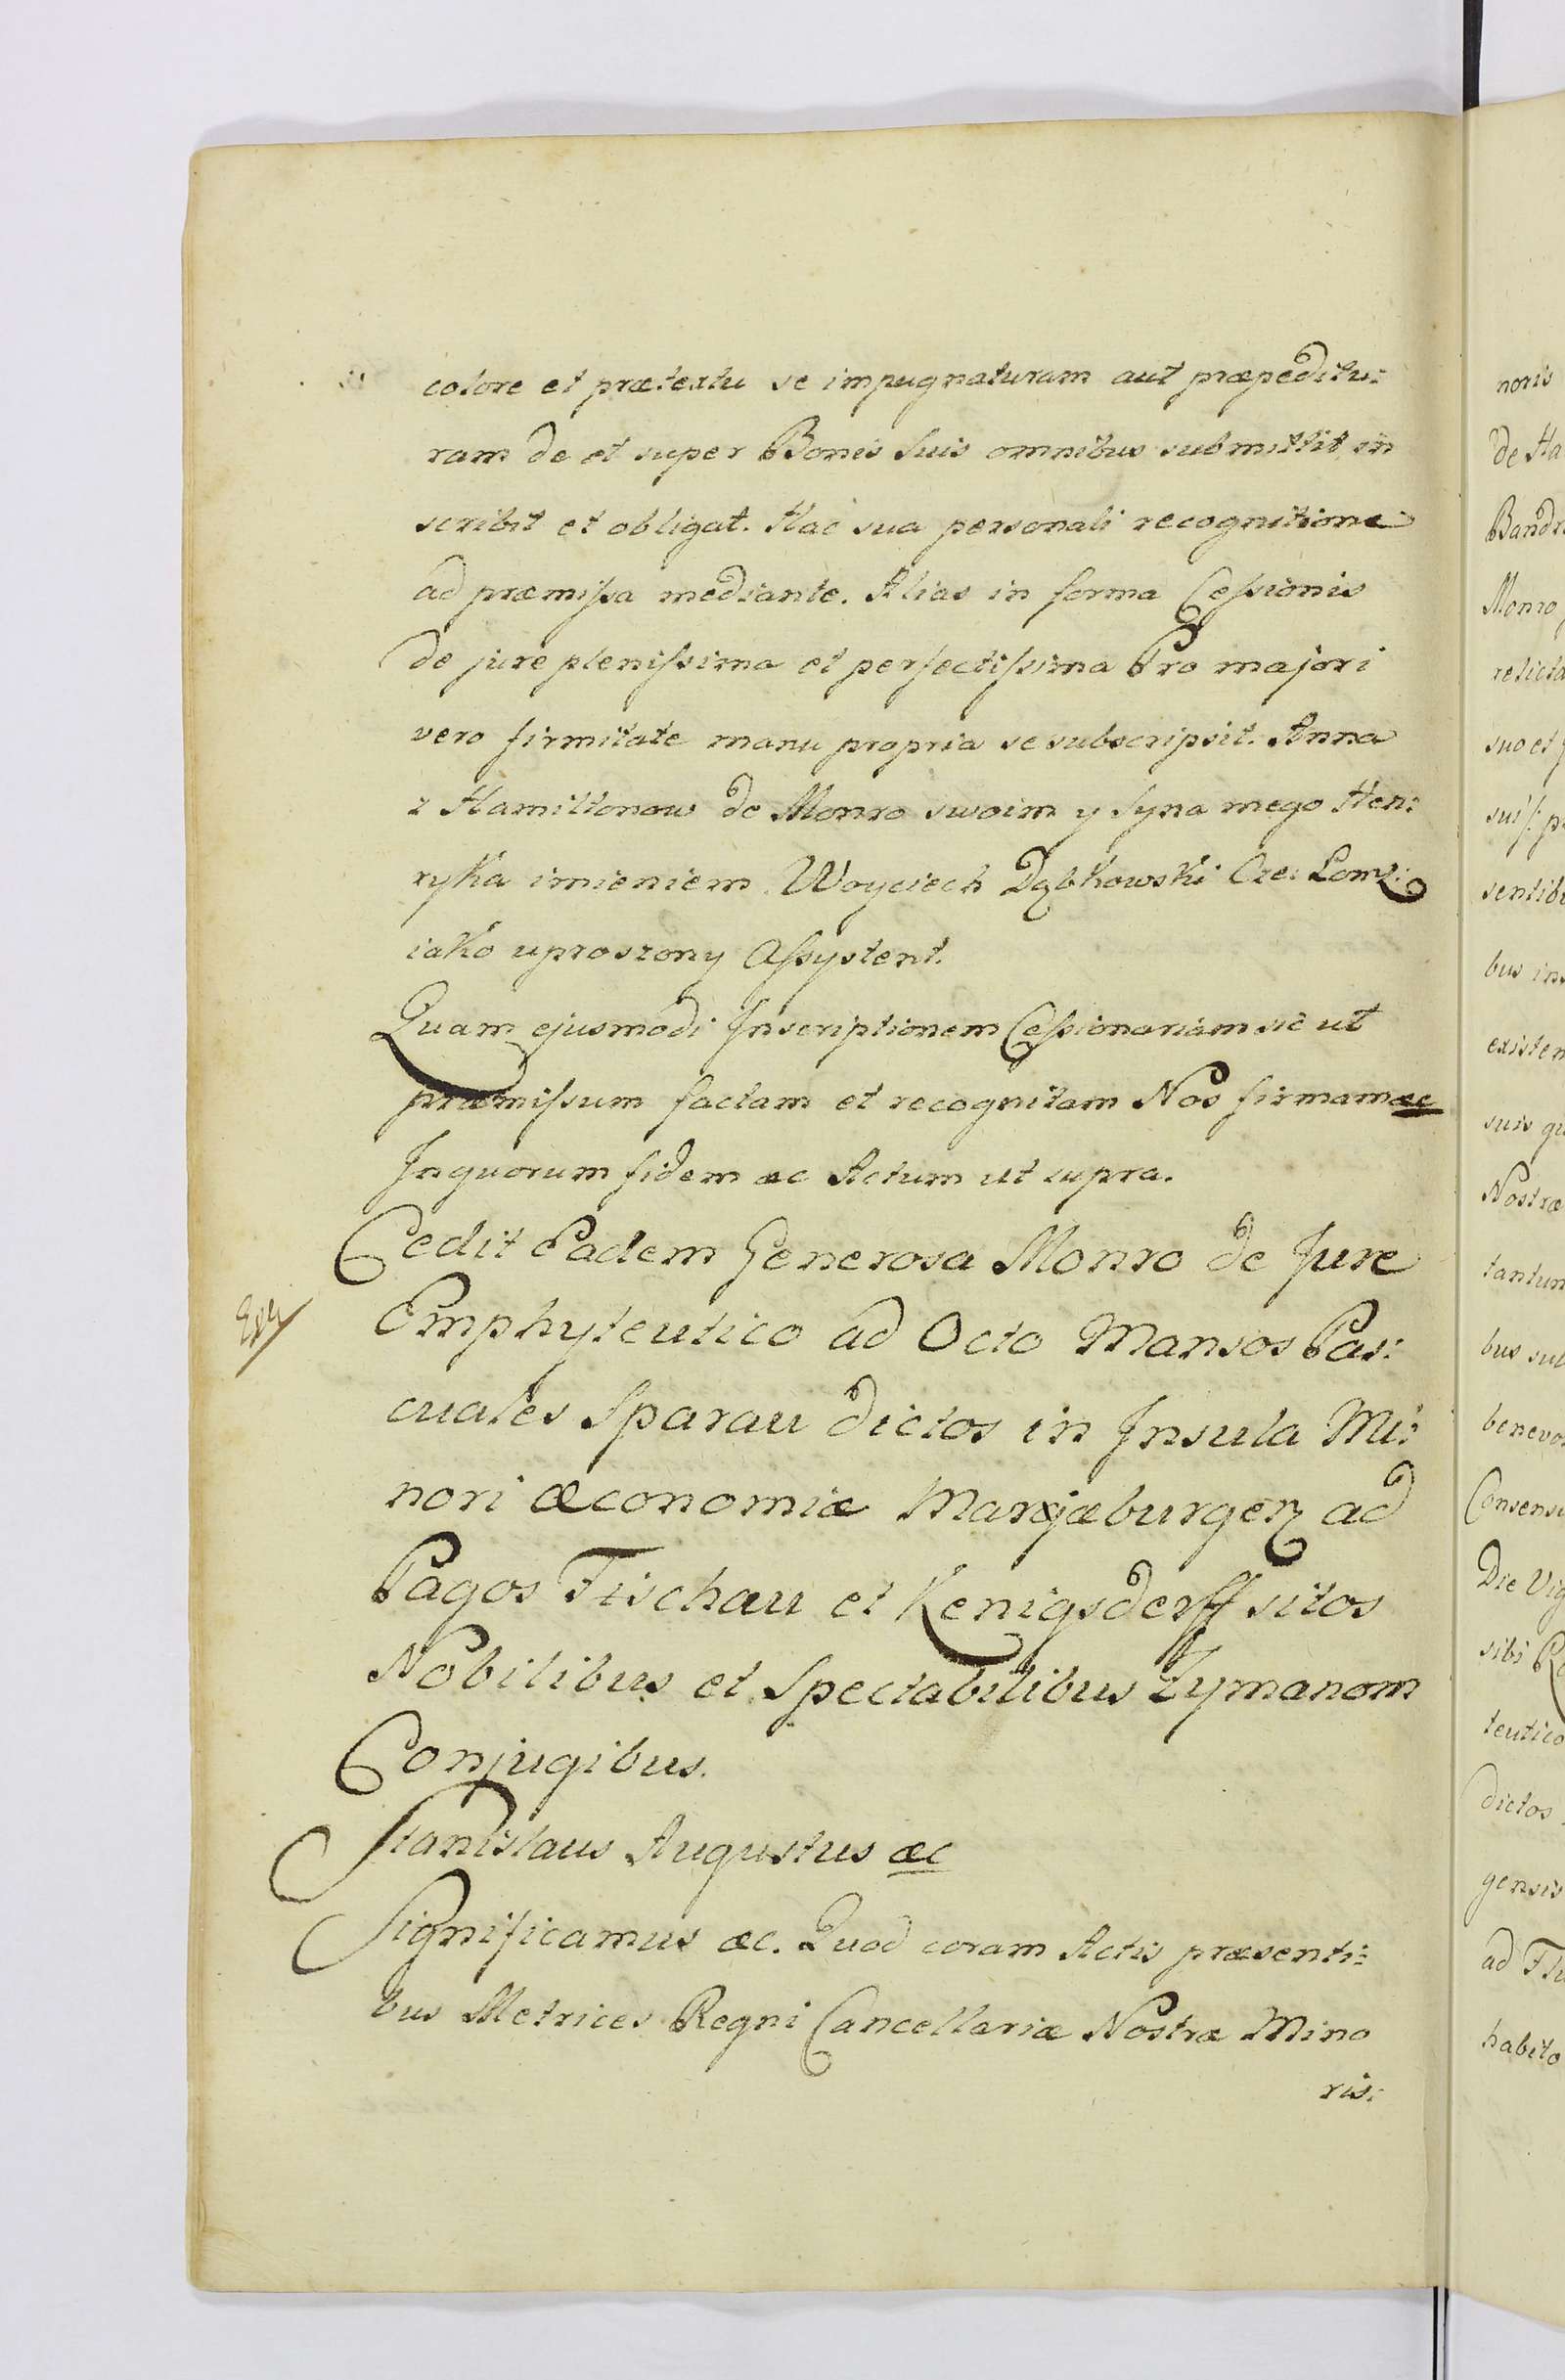 colore et prætextu se impugnaturam aut præpeditu:
ram de et super Bonis Suis omnibus submittit in
scribit et obligat. Hac sua personali recognitione
ad præmissa mediante. Alias in forma Cessionis
de jure plenissima et perfectissima Pro majori
vero firmitate manu propria se subscripsit. Anna
z Hamiltonow de Monro swoim y Syna mego Hen:
ryka imieniem Woyciech Dąbkowski Cze: Lomz:
iako uproszony Assystent.
Quam ejusmodi Inscriptionem Cessionariam sic ut
præmissum factam et recognitam Nos firmam æc
In quorum fidem æc Actum ut supra.
Cedit Eadem Generosa Monro de Jure
Emphyteutico ad Octo Mansos Pas:
cuales Sparau dictos in Insula Mi:
nori œconomiæ Marijæburgen ad
Pagos Fischau et Kenigsderff sitos
Nobilibus et Spectabilibus Zymanom
Conjugibus.
Stanislaus Augustus æc
Significamus æc. Quod coram Actis præsenti:
bus Metrices Regni Cancellariæ Nostræ Mino
ris:
noris
de Ha
Bandr
Monro
relicta
suo et
sentib
bus ins
existen
suis qu
Nostræ
tantum
bus sub
benevo
Consens
Die Vig
sibi
teutico
dictos
gensis
ad
habito